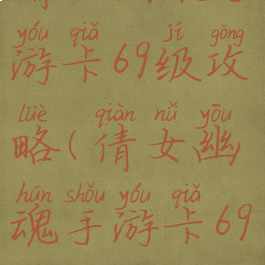 yóu qiǎ jí gōng
游卡69级攻
lüè qiàn nǚ yōu
略(倩女幽
hún shǒu yóu qiǎ
魂手游卡69